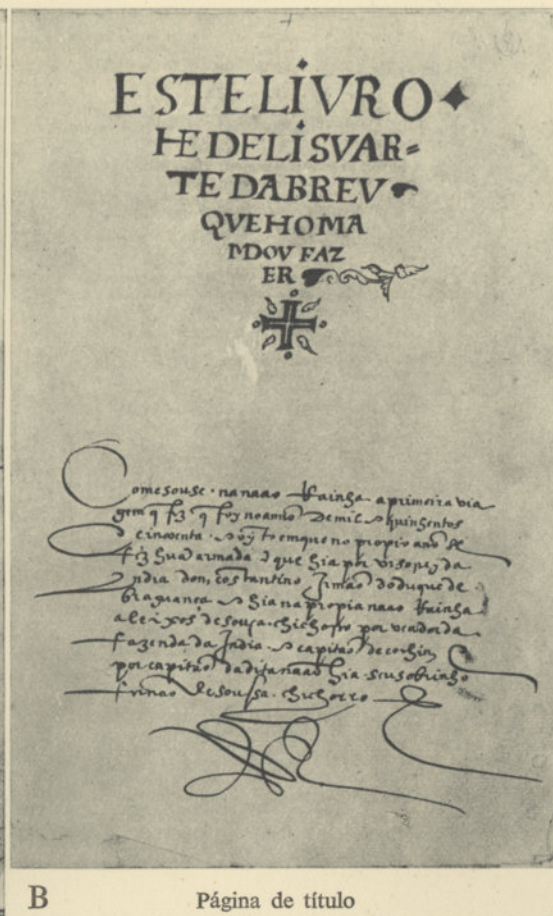 ESTE LIVRO
HE DE LISVAR=
TE DABREV
QVE HO MA
NDOV FAZ
ER
Comesouse na naao Rainha a primeira via
gem q̃ fez q̃ foy no anno de mil & quinhentos
E cinoenta & oyto em que no propio ano se
fez hua armada e que hia por visorey da
India dom costantino Irmão do duque de
braguança & hia na propia naao Rainha
aleixos de sousa chichorro por veador da
fazenda da India & capitão de cochim
por capitão da dita naao hia seu sobrinho
fernão de sousa chichorro
B
Página de título